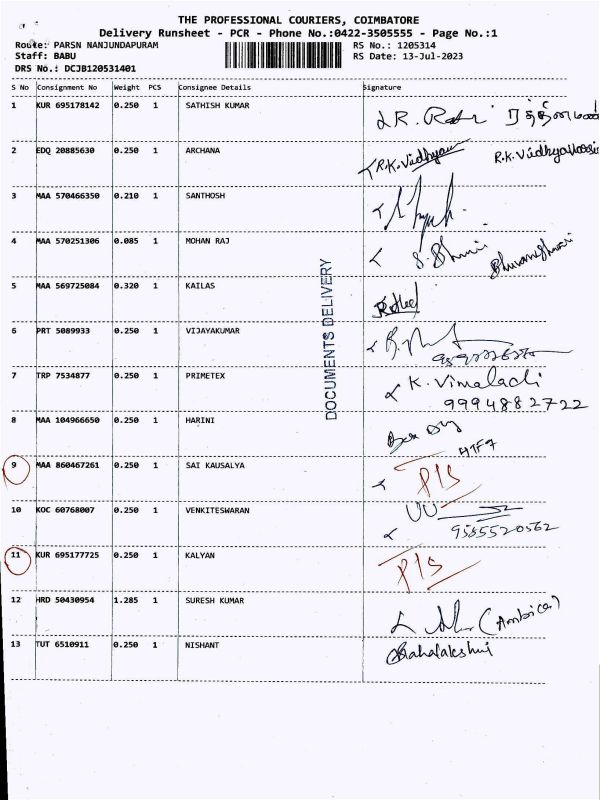 THE PROFESSIONAL COURIERS, COIMBATORE
Delivery Runsheet - PCR - Phone No.:0422-3505555 - Page No.:1
Route: PARSN NANJUNDAPURAM RS No.: 1205314
Staff: BABU RS Date: 13-Jul-2023
DRS No.: DCJB120531401
S No Consignment No Weight PCS Consignee Details Signature
1 KUR 695178142 0.250 1 SATHISH KUMAR R.
2 EDQ 20885630 0.250 1 ARCHANA R.K.Vidhyaa
3 MAA 570466350 0.210 1 SANTHOSH
4 MAA 570251306 0.085 1 MOHAN RAJ Bhuvaneshwari
5 MAA 569725084 0.320 1 KAILAS
6 PRT 5089933 0.250 1 VIJAYAKUMAR
7 TRP 7534877 0.250 1 PRIMETEX K. Vimaladi
9994882722
8 MAA 104966650 0.250 1 HARINI
9 MAA 860467261 0.250 1 SAI KAUSALYA P/S
10 KOC 60768007 0.250 1 VENKITESWARAN
9585520562
11 KUR 695177725 0.250 1 KALYAN P/S
12 HRD 50430954 1.285 1 SURESH KUMAR (Ambica)
13 TUT 6510911 0.250 1 NISHANT Mahalakshmi
DOCUMENTS DELIVERY